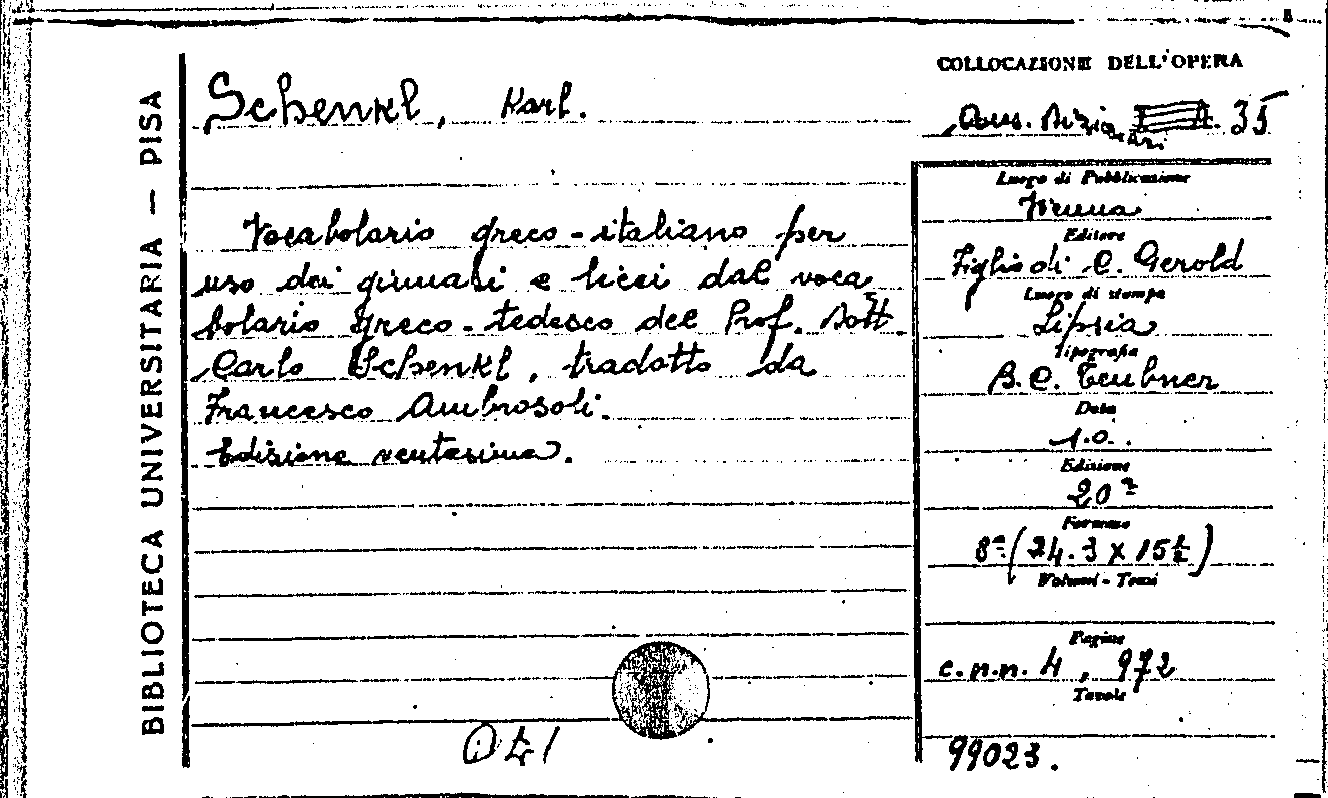 BIBLIOTECA UNIVERSITARIA — PISA
Schenkl, Karl.
Vocabolario greco-italiano per
uso dei ginnasi e licei dal voca
bolario greco-tedesco del Prof. Dott
Carlo Schenkl, tradotto da
Francesco Ambrosoli.
Edizione ventesima.
041
COLLOCAZIONE DELL'OPERA
Cons. Dizionari 35
Luogo di Pubblicazione
Vienna
Editore
Figlio di C. Gerold
Luogo di stampa
Lipsia
Tipografia
B. C. Teubner
Data
Edizione
20ª
Formato
8º (24.3 x 15½)
Volumi - Tomi
Pagine
c.n.n. 4, 972
Tavole
99023.